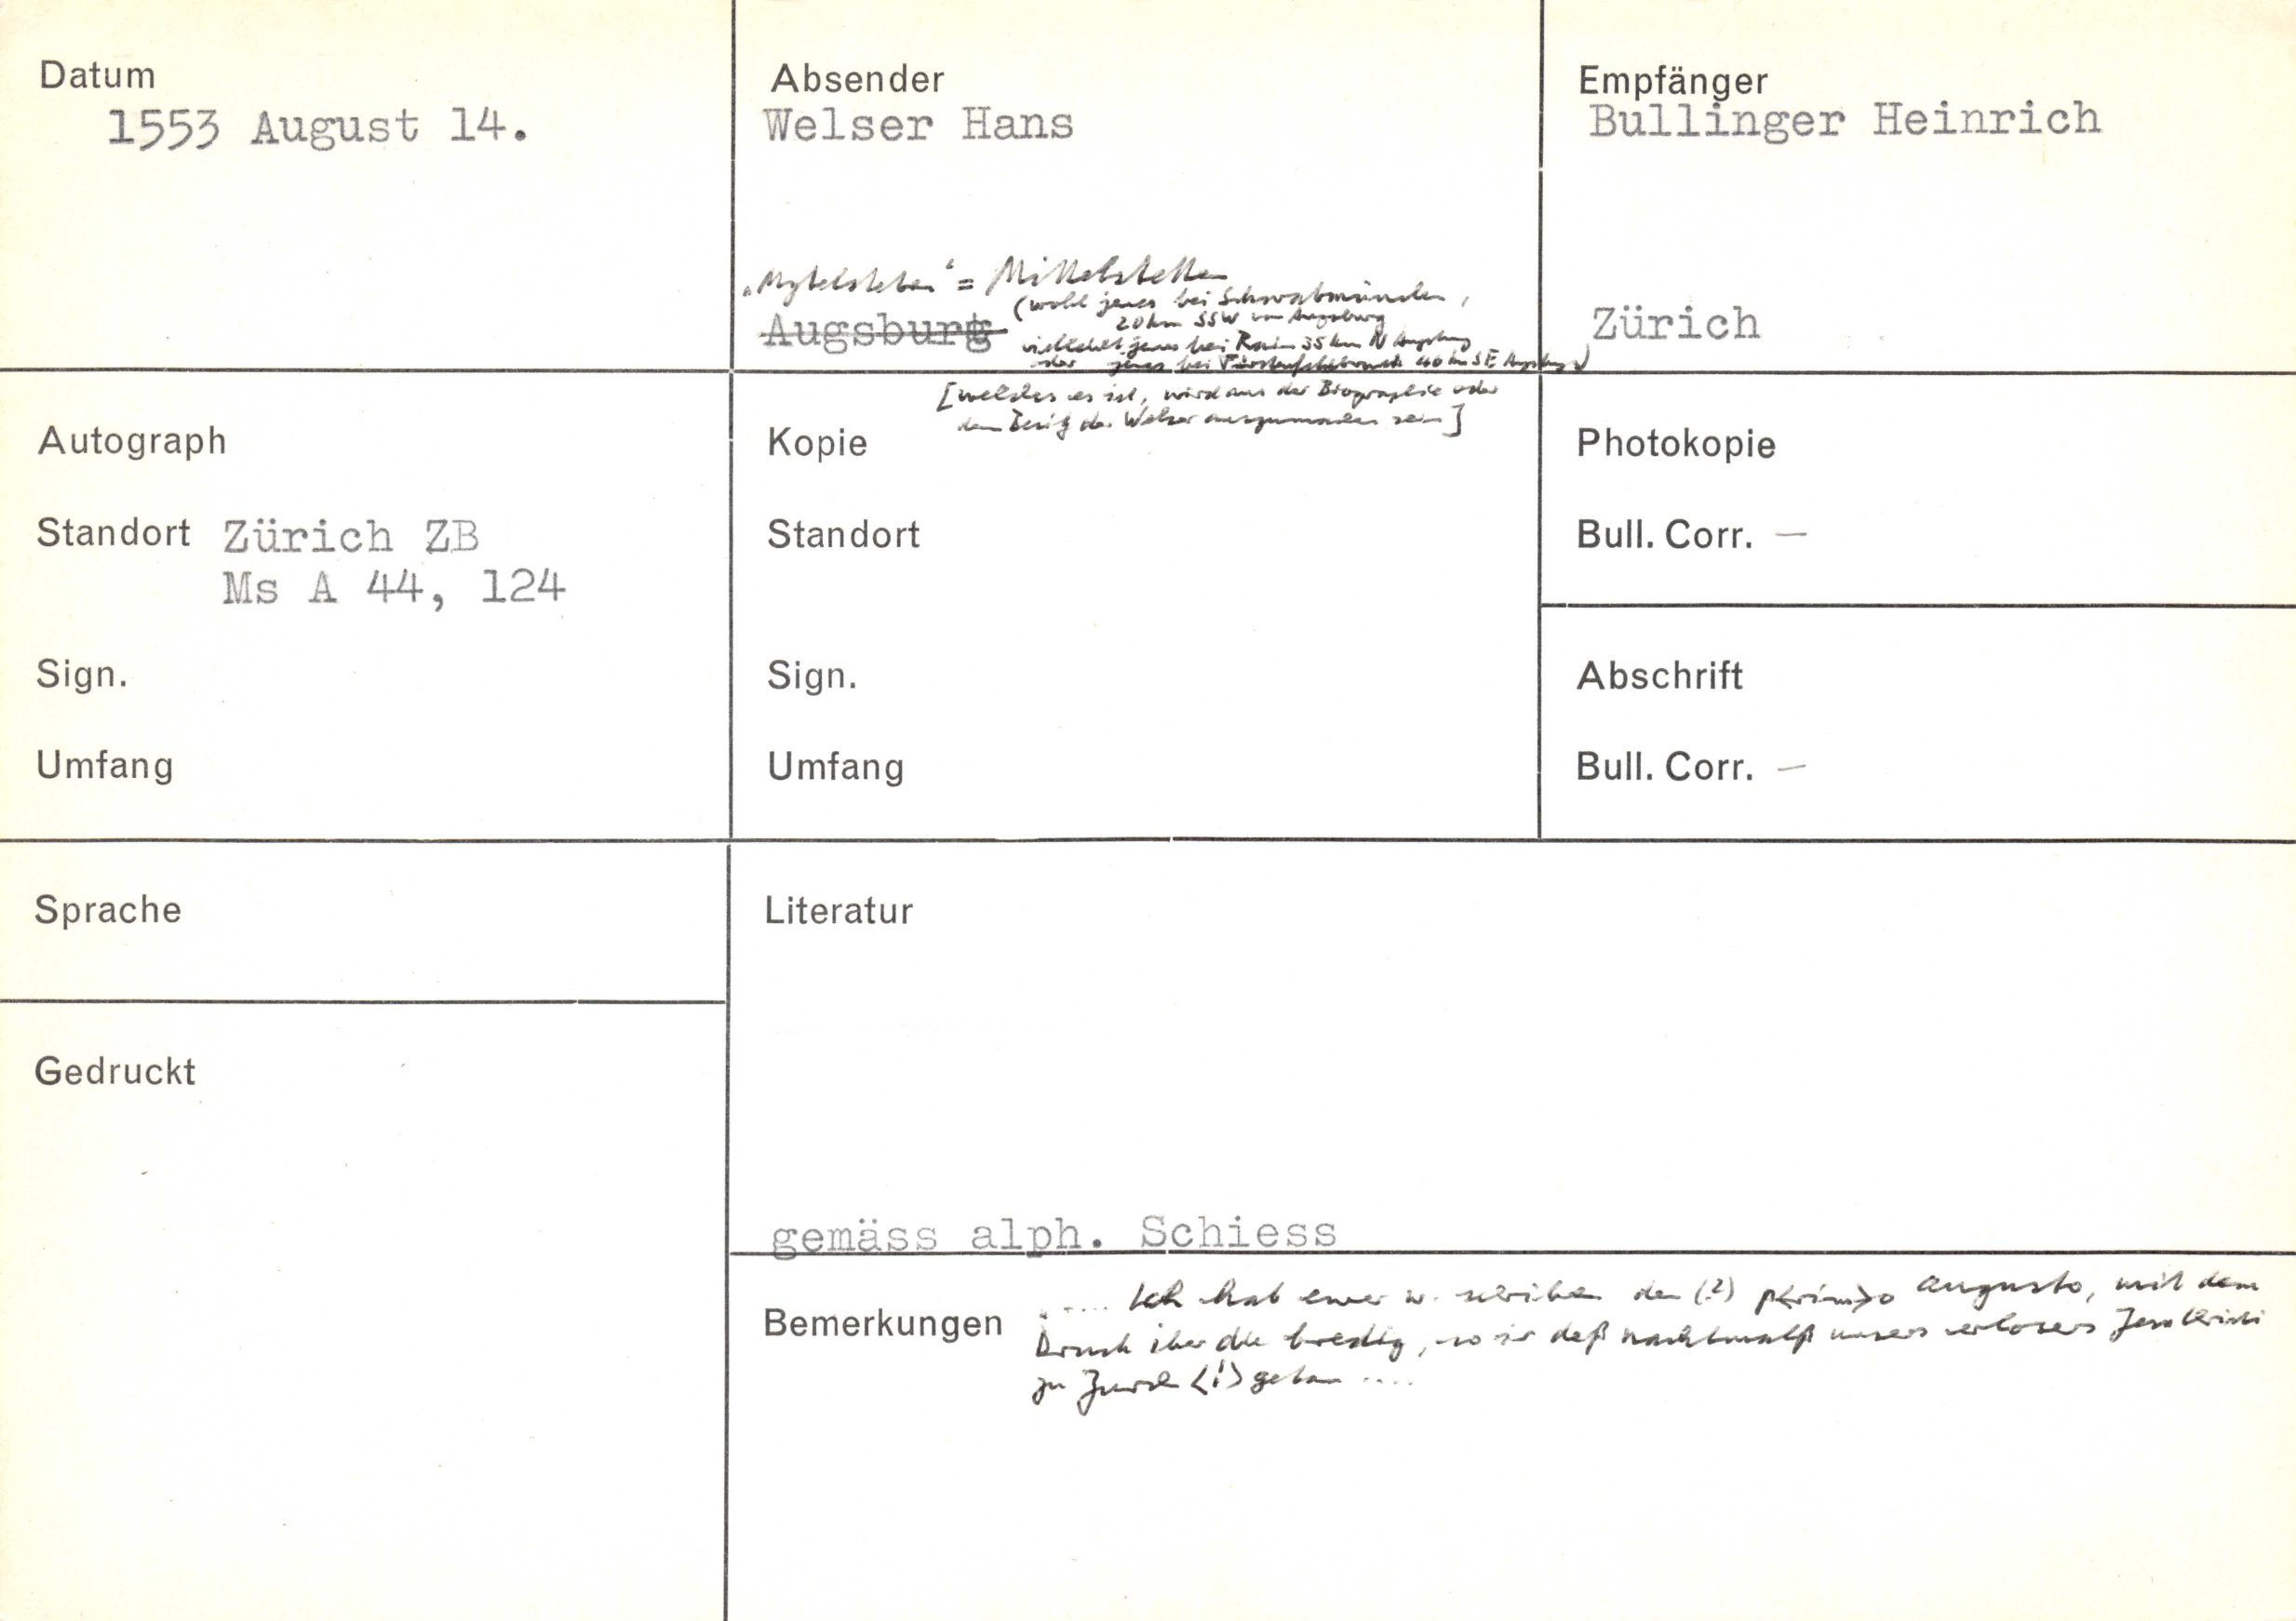 Datum
1553 August 14.
Absender
Welser Hans
„Mytelsteten“ = Mittelstetten
(wohl jenes bei Schwabmünchen,
20 km SSW von Augsburg
Augsburg
vielleicht jenes bei Rain 35 km N Augsburg
oder jenes bei Fürstenfeldbruck 40 km SE Augsburg)
[welches es ist, wird aus der Biographie oder
dem Besitz der Welser auszumachen sein]
Empfänger
Bullinger Heinrich
Zürich
Autograph
Standort Zürich ZB
Ms A 44, 124
Sign.
Umfang
Kopie
Standort
Sign.
Umfang
Photokopie
Bull. Corr. —
Abschrift
Bull. Corr. —
Sprache
Gedruckt
Literatur
gemäss alph. Schiess
Bemerkungen
..... Ich hab ewer w. schriben den (?) p<rim>o augusto, mit dem
Druck iber die bredig, so ir deß nachtmalß unsers erlosers Jesu Cristi
zu Zurch <!> getan ....